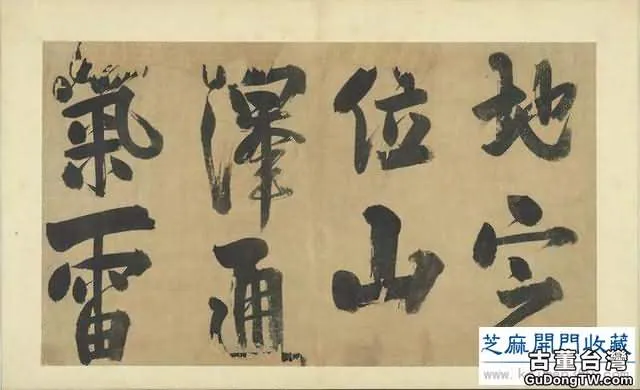 地定
位山
澤通
氣雷
芝麻開門收藏
古董台灣
GuDongTW.com